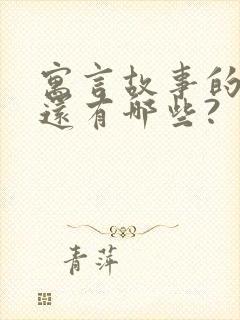 寓言故事的
還有哪些?
青萍